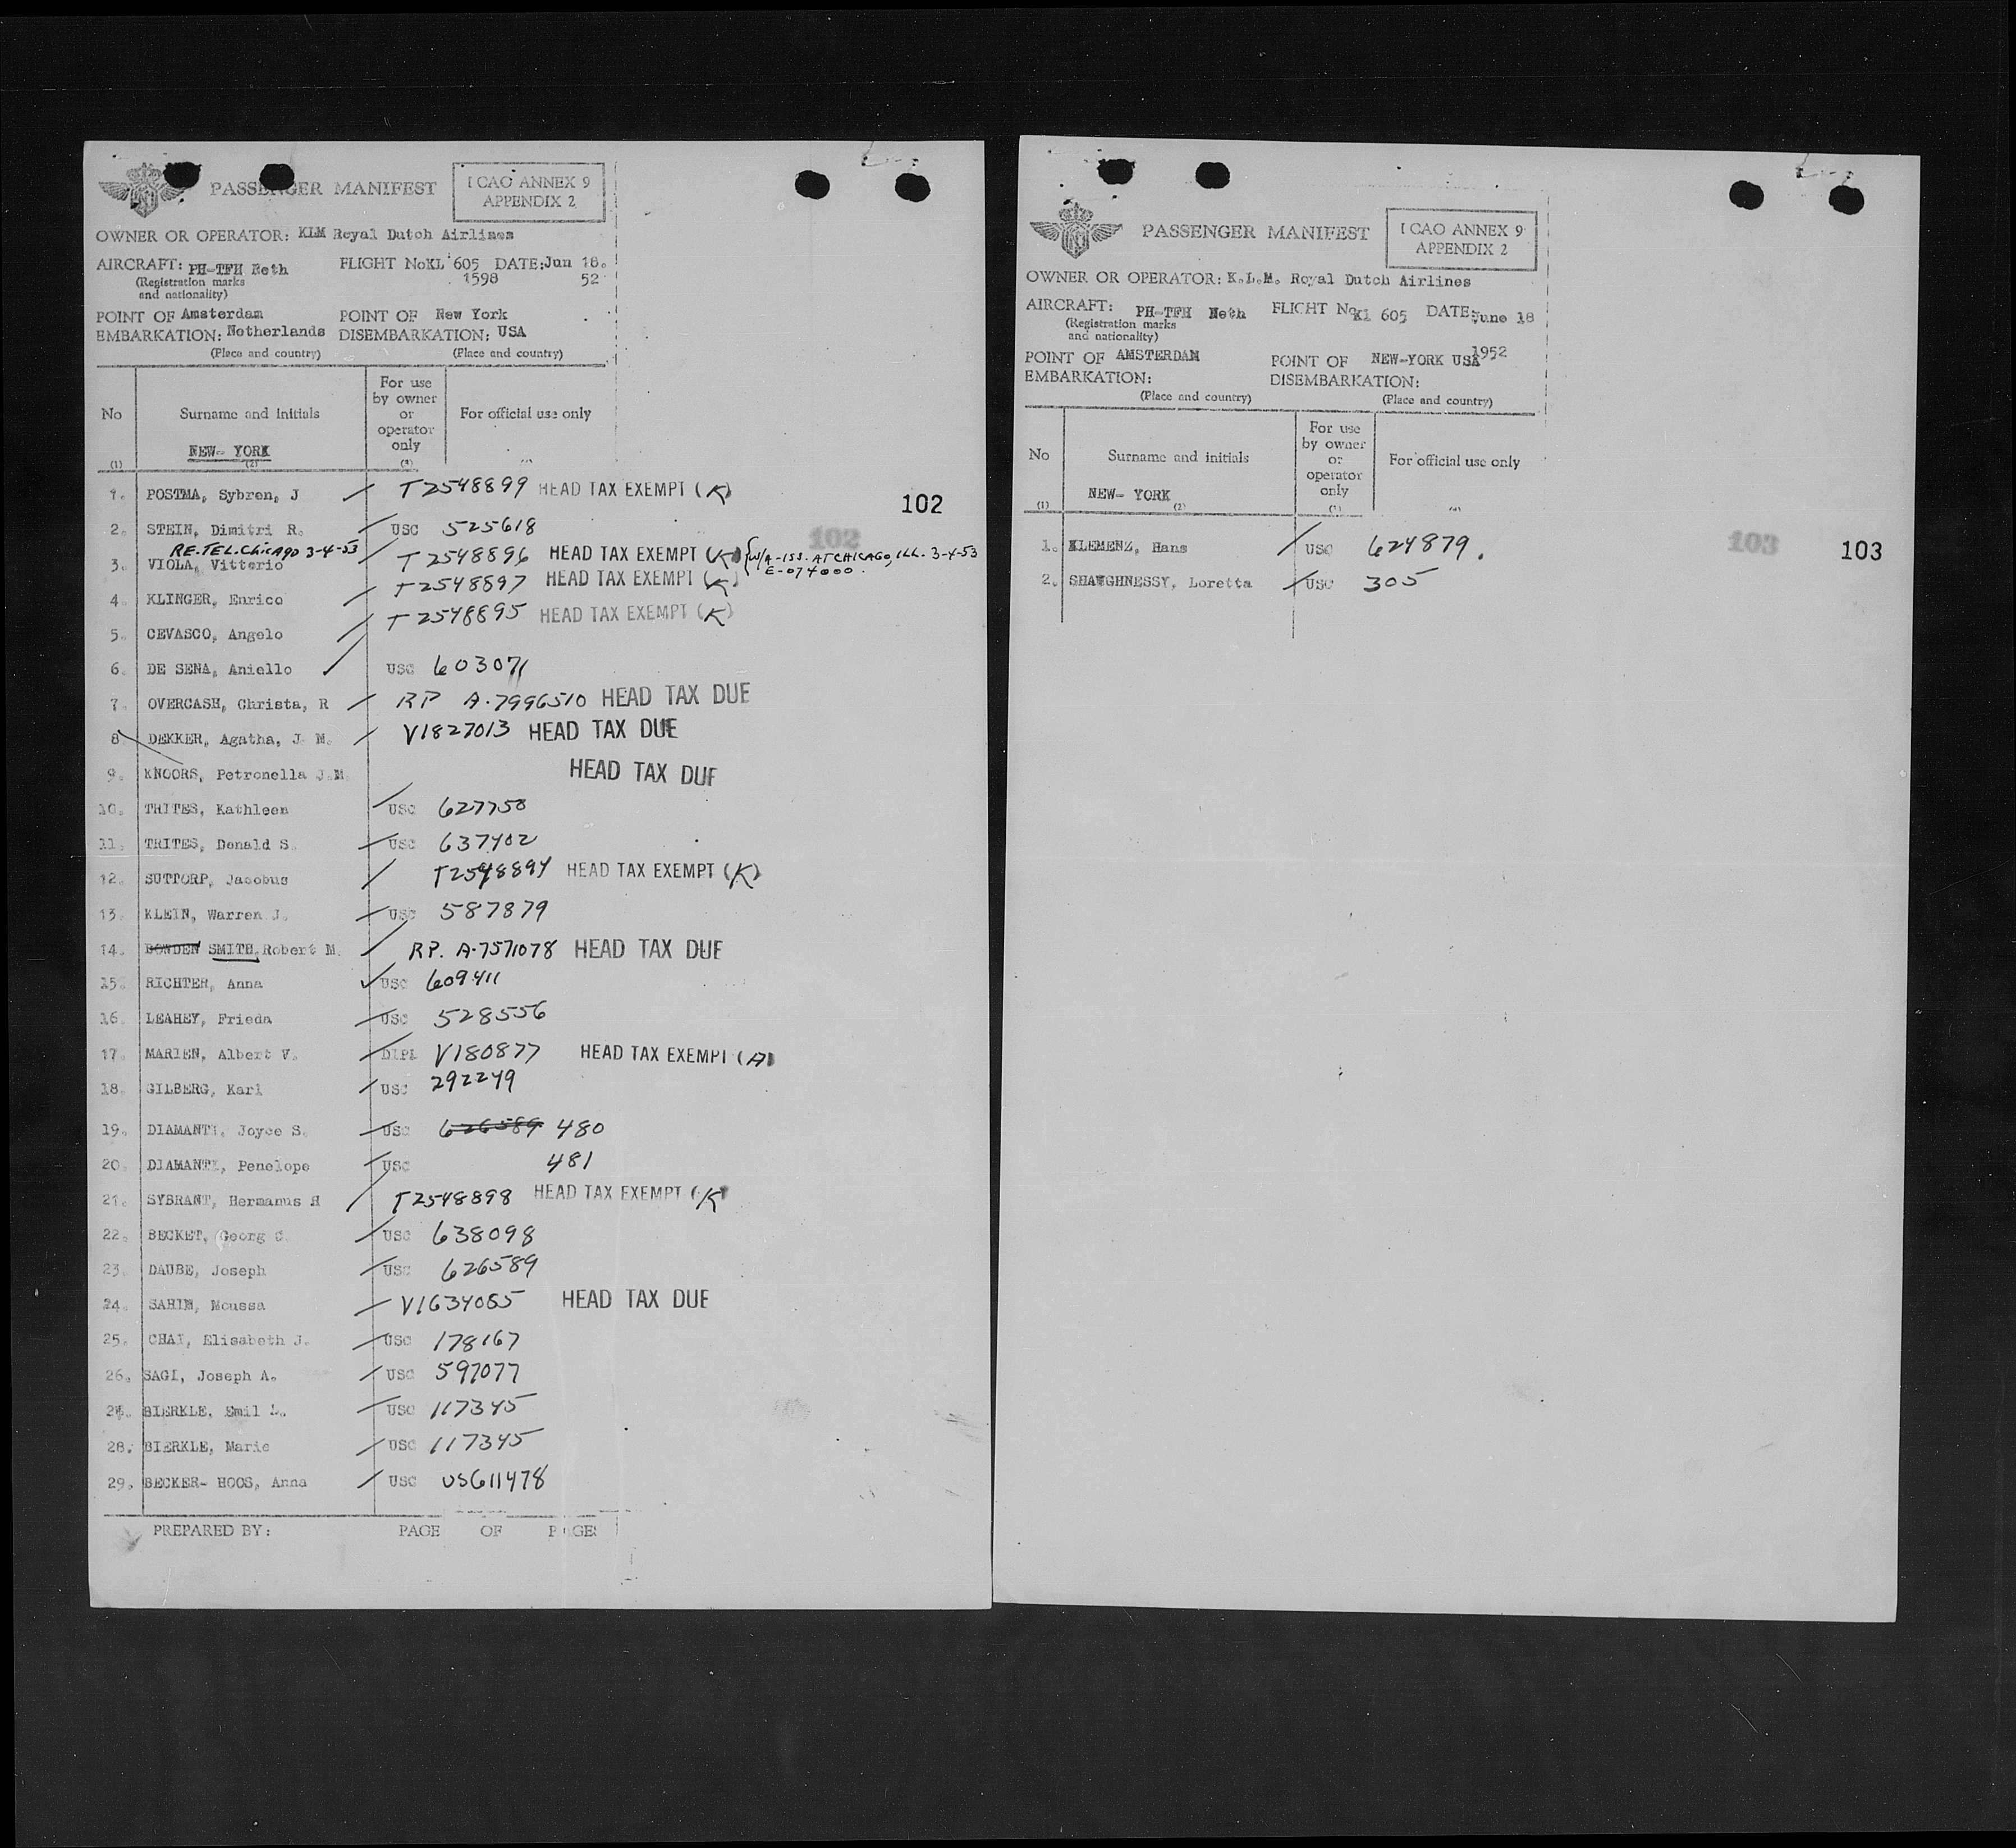 PASSENGER MANIFEST
ICAO ANNEX 9
APPENDIX 2
OWNER OR OPERATOR: KLM Royal Dutch Airlines
AIRCRAFT: PH-TFH Neth FLIGHT No KL 605 DATE: Jun 18.
(Registration marks 1598 52
and nationality)
POINT OF Amsterdam POINT OF New York
EMBARKATION: Netherlands DISEMBARKATION: USA
(Place and country) (Place and country)
No Surname and initials For use by owner or operator only For official use only
NEW- YORK
(1) (2) (3)
102
102
1. POSTMA, Sybren, J T2548899 HEAD TAX EXEMPT (K)
2. STEIN, Dimitri R. USC 525618
RE.TEL.CHICAGO 3-4-53
3. VIOLA, Vittorio T2548896 HEAD TAX EXEMPT (K) {W/A-ISS. AT CHICAGO, ILL. 3-4-53
E-074000.
4. KLINGER, Enrico T2548897 HEAD TAX EXEMPT (K)
5. CEVASCO, Angelo T2548895 HEAD TAX EXEMPT (K)
6. DE SENA, Aniello USC 603071
7. OVERCASH, Christa, R RP A-7996510 HEAD TAX DUE
8. DEKKER, Agatha, J. M. V1827013 HEAD TAX DUE
9. KNOORS, Petronella J.M. HEAD TAX DUE
10. TRITES, Kathleen USC 627750
11. TRITES, Donald S. USC 637402
12. SUTTORP, Jacobus T2548894 HEAD TAX EXEMPT (K)
13. KLEIN, Warren J. USC 587879
14. BOWDEN SMITH, Robert M. RP. A-7571078 HEAD TAX DUE
15. RICHTER, Anna USC 609411
16. LEAHEY, Frieda USC 528556
17. MARIEN, Albert V. DIPL V180877 HEAD TAX EXEMPT (A)
18. GILBERG, Karl USC 292249
19. DIAMANTI, Joyce S. USC 626589 480
20. DIAMANTI, Penelope USC 481
21. SYBRANT, Hermanus H T2548898 HEAD TAX EXEMPT (K)
22. BECKET, Georg C. USC 638098
23. DAUBE, Joseph USC 626589
24. SAHIM, Moussa V1634055 HEAD TAX DUE
25. CHAI, Elisabeth J. USC 178167
26. SAGI, Joseph A. USC 597077
27. BIERKLE, Emil USC 117345
28. BIERKLE, Marie USC 117345
29. BECKER- HOOS, Anna USC US611478
PREPARED BY: PAGE OF PAGES
PASSENGER MANIFEST
ICAO ANNEX 9
APPENDIX 2
OWNER OR OPERATOR: K.L.M. Royal Dutch Airlines
AIRCRAFT: PH-TFH Neth FLIGHT No Kl 605 DATE: June 18
(Registration marks
and nationality)
1952
POINT OF AMSTERDAM POINT OF NEW-YORK USA
EMBARKATION: DISEMBARKATION:
(Place and country) (Place and country)
No Surname and initials For use by owner or operator only For official use only
NEW- YORK
(1) (2) (3) (4)
103 103
1. KLEMENZ, Hans USC 624879.
2. SHAUGHNESSY, Loretta USC 305